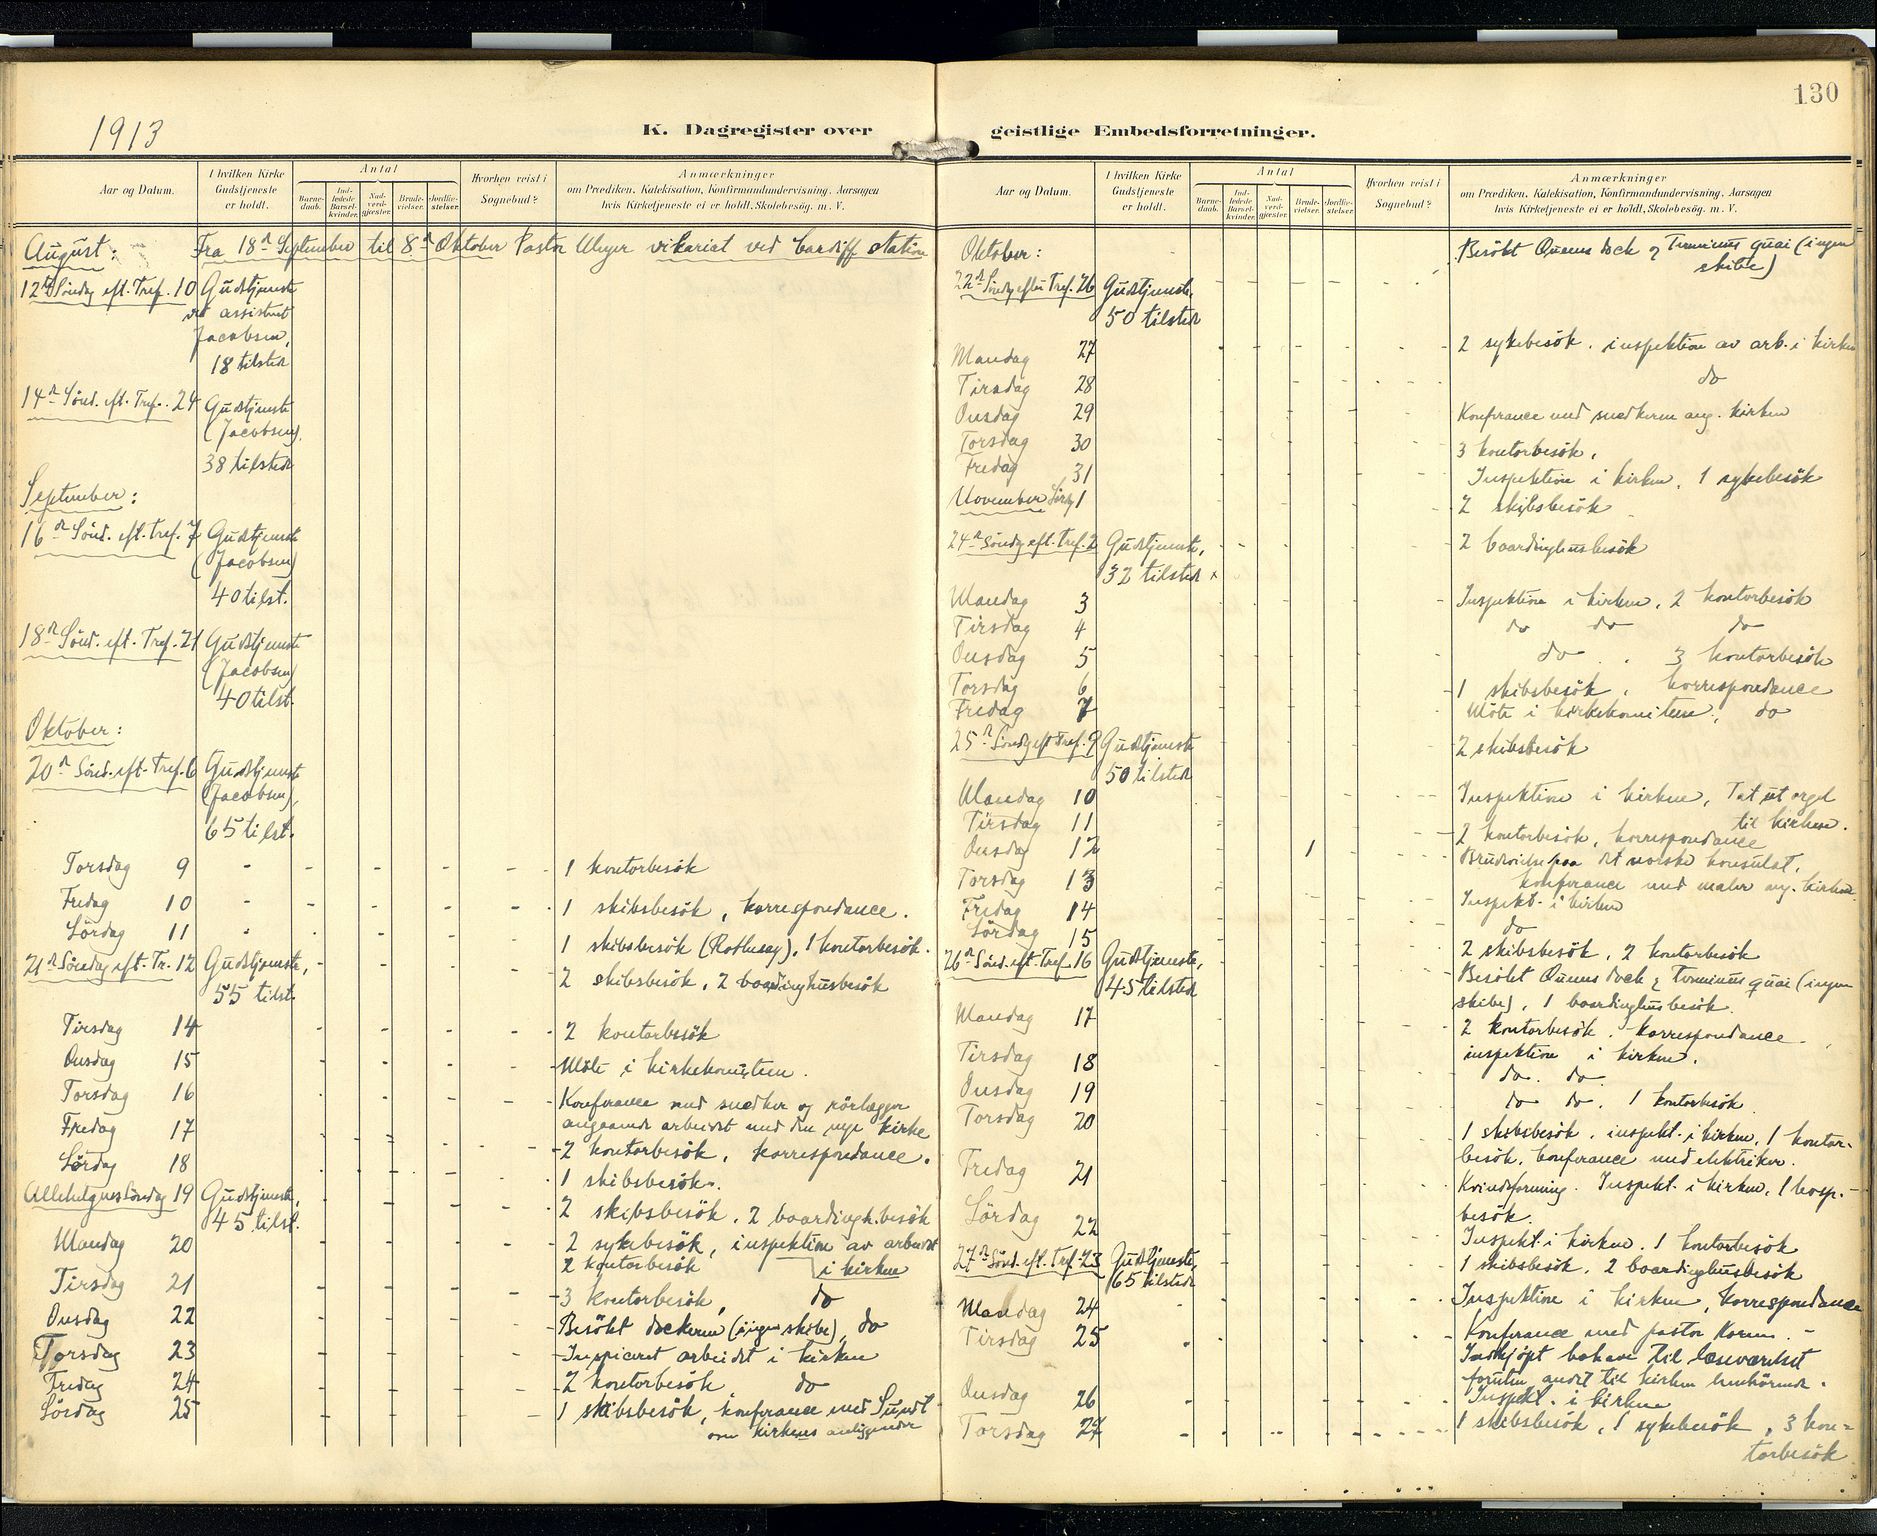 130
1913
K. Dagregister over geistlige Embedsforretninger.
Aar og Datum.
I hvilken Kirke Gudstjeneste er holdt.
Antal
Barnedaab.
Indledede Barselkvinder.
Nadverdgjester.
Brudevielser.
Jordfæstelser.
Hvorhen reist i Sognebud?
Anmærkninger
om Prædiken, Katekisation, Konfirmandundervisning, Aarsagen
hvis Kirketjeneste ei er holdt, Skolebesøg. m. V.
August: Fra 18de September til 8de Oktober Pastor Meyer vikariat ved Cardiff station
12te Söndag eft. Tref. 10 Gudstjeneste
ved assistent
Jacobsen,
18 tilsted
14de Sönd. eft. Tref. 24 Gudstjeneste
(Jacobsen).
38 tilsted
September:
16de Sönd. eft. Tref. 7 Gudstjeneste
(Jacobsen)
40 tilst.
18de Sönd. eft. Tref. 21 Gudstjeneste
(Jacobsen)
40 tilst.
Oktober:
20de Sönd. eft. Tref. 6 Gudstjeneste
(Jacobsen),
65 tilst.
Torsdag 9 - - - - - - 1 kontorbesök
Fredag 10 - - - - - - 1 skibsbesök, korrespondance.
Lördag 11 - - - - - 1 skibsbesök (Rothesay), 1 kontorbesök.
21de Söndag eft. Tr. 12 Gudstjeneste, 2 skibsbesök, 2 boardinghusbesök
55 tilst.
Tirsdag 14 - - - - - 2 kontorbesök
Onsdag 15 - - - - Möte i kirkekomiteen.
Torsdag 16 - - - - - Konferance med snedker og rörlægger
angaaende arbeidet med den nye kirke
Fredag 17 - - - - - 2 kontorbesök, korrespondance.
Lördag 18 - - - - 1 skibsbesök.
Allehelgens Söndag 19 Gudstjeneste, 2 skibsbesök, 2 boardingh.besök
45 tilst.
Mandag 20 - - - - - 2 sykebesök, inspektion av arbeidet
i kirken
Tirsdag 21 - - - - 2 kontorbesök
Onsdag 22 - - - - - 3 kontorbesök, do
Torsdag 23 - - - - - Besökt dockerne (ingen skibe), do
Inspiceret arbeidet i kirken
Fredag 24 - - - - - 2 kontorbesök do
Lördag 25 - - - - - 1 skibsbesök, konferance med Sundt
om kirkens anliggender
Aar og Datum.
I hvilken Kirke Gudstjeneste er holdt.
Antal
Barnedaab.
Indledede Barselkvinder.
Nadverdgjester.
Brudevielser.
Jordfæstelser.
Hvorhen reist i Sognebud?
Anmærkninger
om Prædiken, Katekisation, Konfirmandundervisning, Aarsagen
hvis Kirketjeneste ei er holdt, Skolebesøg. m. V.
Oktober:
22de Söndag efter Tref. 26 Gudstjeneste, Besökt Queens dock og Terminus quai (ingen
skibe)
50 tilsted
Mandag 27 2 sykebesök. inspektion av arb. i kirken
Tirsdag 28 do
Onsdag 29 Konferance med snedkeren ang. kirken
Torsdag 30 3 kontorbesök.
Fredag 31 Inspektion i kirken, 1 sykebesök
November Lördag 1 2 skibsbesök
24de Söndag eft. Tref. 2 Gudstjeneste, 2 boardinghusbesök
32 tilsted
Mandag 3 Inspektion i kirken, 2 kontorbesök
Tirsdag 4 do do do
Onsdag 5 do . 3 kontorbesök
Torsdag 6 1 skibsbesök, korrespondance
Fredag 7 Möte i kirkekomiteen, do
25de Söndag eft Tref. 9 Gudstjeneste 2 skibsbesök
50 tilsted
Mandag 10 Inspektion i kirken, Tat ut orgel
til kirken.
Tirsdag 11 2 kontorbesök, korrespondance
Onsdag 12 1 Brudevielse paa det norske konsulat.
Torsdag 13 konferance med maler ang. kirken
Fredag 14 Inspekt. i kirken
Lördag 15 do
2 skibsbesök, 2 kontorbesök
26de Sönd. eft. Tref. 16 Gudstjeneste, Besökt Queens dock & Terminus quai (ingen
45 tilsted skibe), 1 boardinghusbesök.
Mandag 17 2 kontorbesök. korrespondance.
inspektion i kirken.
Tirsdag 18 do. do.
Onsdag 19 do do. 1 kontorbesök
Torsdag 20 1 skibsbesök. inspekt. i kirken, 1 kontor-
besök. konferance med elektriker.
Fredag 21 Kvindeforening. Inspekt. i kirken, 1 hosp.-
besök.
Lördag 22 Inspekt. i kirken. 1 kontorbesök
27de Sönd. eft. Tref. 23 Gudstjeneste, 1 skibsbesök. 2 boardinghusbesök
65 tilsted
Mandag 24 Inspektion i kirken, korrespondance
Tirsdag 25 Konferance med pastor
Indkjöpt til læseværelset
andet til kirken henhörende.
Onsdag 26 Inspekt. i kirken
Torsdag 27 1 skibsbesök, 1 sykebesök, 3 kon-
torbesök